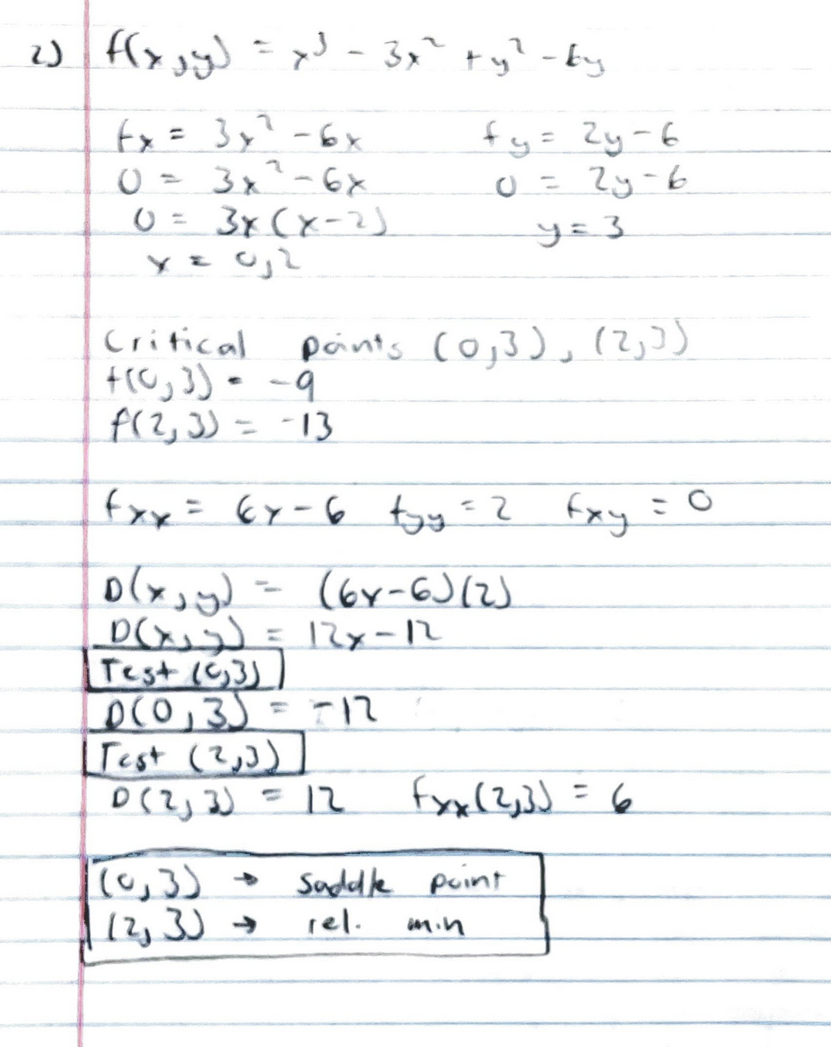 2) f(x,y) = x³ - 3x² + y² - 6y
fx = 3x² - 6x fy = 2y - 6
0 = 3x² - 6x 0 = 2y - 6
0 = 3x(x-2) y = 3
x = 0,2
Critical points (0,3), (2,3)
f(0,3) = -9
f(2,3) = -13
fxx = 6x - 6 fyy = 2 fxy = 0
D(x,y) = (6x-6)(2)
D(x,y) = 12x - 12
Test (0,3)
D(0,3) = -12
Test (2,3)
D(2,3) = 12 fxx(2,3) = 6
(0,3) → saddle point
(2,3) → rel. min